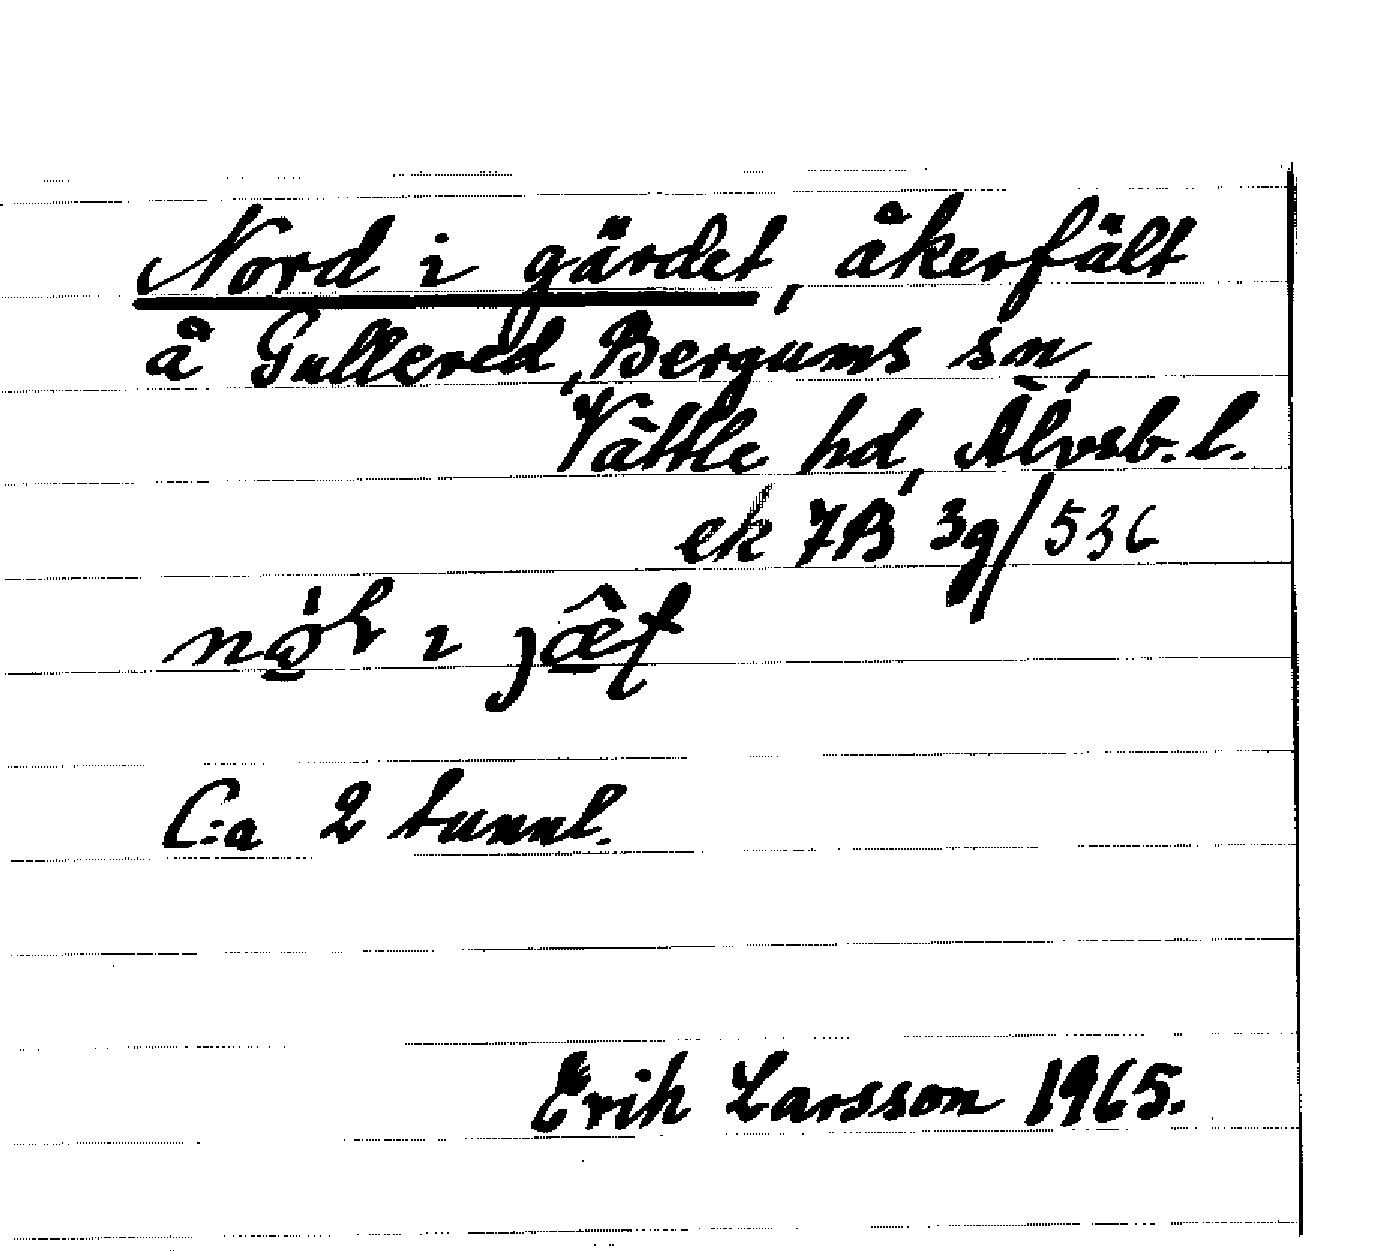 Nord i gärdet, åkerfält
å Gullered, Bergums sn,
Vättle hd, Älvsb. l.
ek 7B 3g/536
i
C:a 2 tunnl.
Erik Larsson 1965.